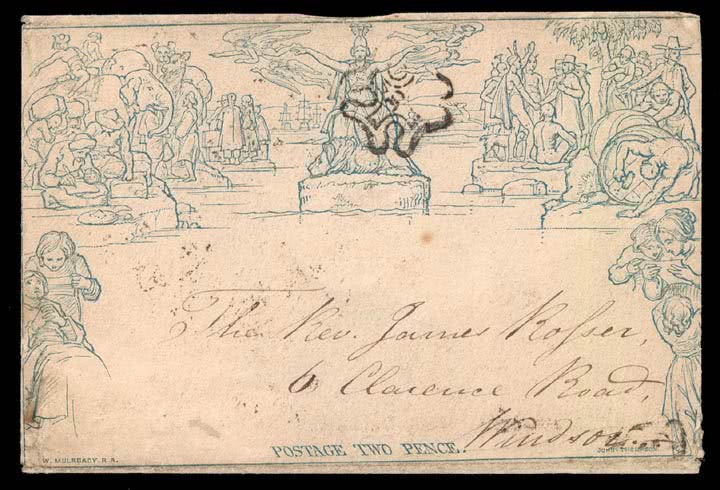 The Rev. James Rosser,
6 Clarence Road,
Windsor.
POSTAGE TWO PENCE.
W. MULREADY. R.A.
JOHN THOMPSON